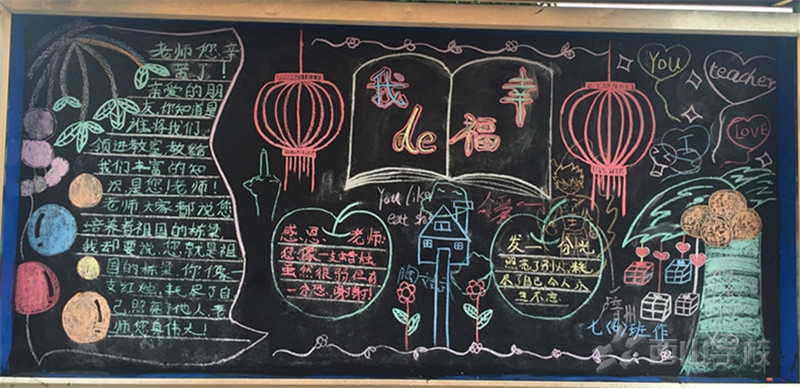 老师您辛
苦了!
亲爱的朋
友你知道是
谁将我们,
领进教室,教给
我们丰富的知
识是您!老师!
老师大家都说您
培养着祖国的栋梁
我却要说,您就是祖
国的栋梁,你像一
支红烛,耗尽了自
己,照亮了他人,老
师您真伟大!
我 幸
de 福
You like
eat sh
感恩 老师
您像一支蜡烛,
虽然很弱但有
发一份光
照亮了别人,耗
尽了自己令人永
生不忘
You
teacher
LOVE
七 班作
石山学校